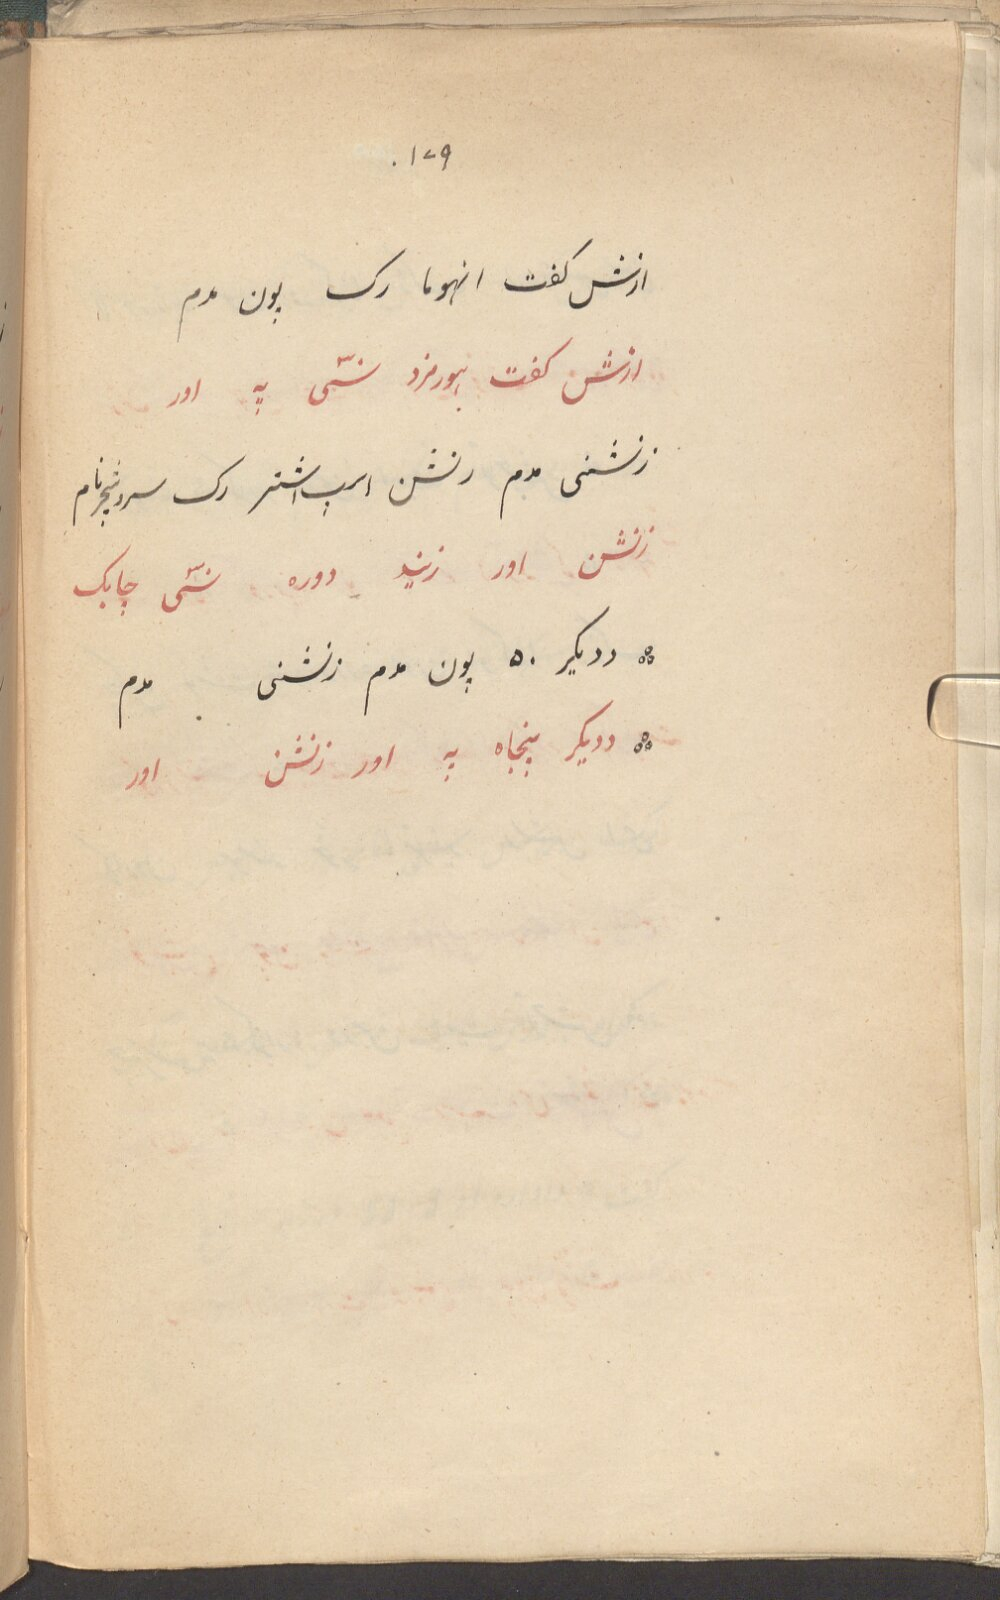 ۱۷۹.
ازش گفت انهوما رک پون مدم
ازش گفت هورمزد شمی په اور
زنشنی مدم زنشن اسپ اشتر رک سروشچرنام
زنشن اور زنید دوره شمی چابک
ددیگر ۵۰ پون مدم زنشنی مدم
ددیگر پنجاه په اور زنشن اور